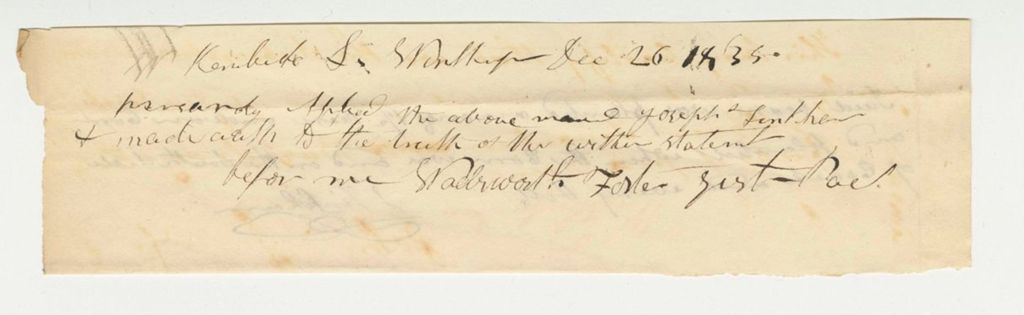 Kenibeck Ss Winthrop Dec 26 1835
parsanaly Apked the above named Joseph Tinkham
& made oath to the truth of the within statemt
before me Wadsworth Foster Just Pac.